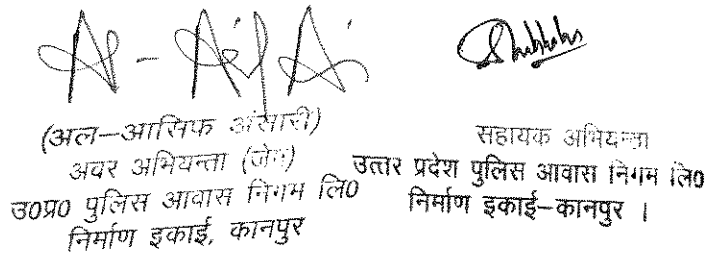 (अल–आसिफ अंसारी)
अवर अभियन्ता (जेम)
उ०प्र० पुलिस आवास निगम लि०
निर्माण इकाई, कानपुर
सहायक अभियन्ता
उत्तर प्रदेश पुलिस आवास निगम लि०
निर्माण इकाई–कानपुर ।